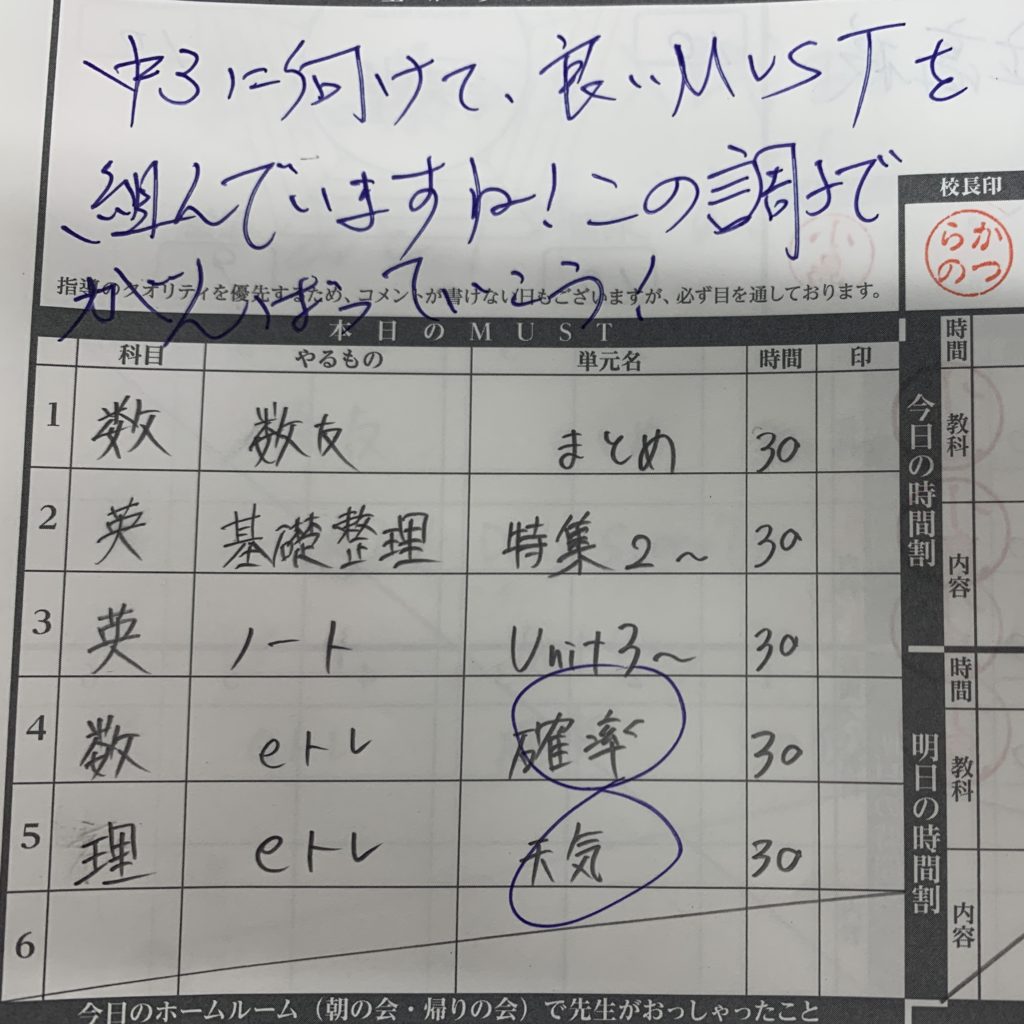 中3に向けて、良いMUSTを
組んでいますね!この調子で
がんばっていこう!
指導のクオリティを優先するため、コメントが書けない日もございますが、必ず目を通しております。
校長印
かつ
らの
本日のMUST
科目 やるもの 単元名 時間 印
1 数 数友 まとめ 30
2 英 基礎整理 特集2~ 30
3 英 ノート Unit3~ 30
4 数 eトレ 確率 30
5 理 eトレ 天気 30
6
今日の時間割
時間
教科
内容
明日の時間割
時間
教科
内容
今日のホームルーム(朝の会・帰りの会)で先生がおっしゃったこと